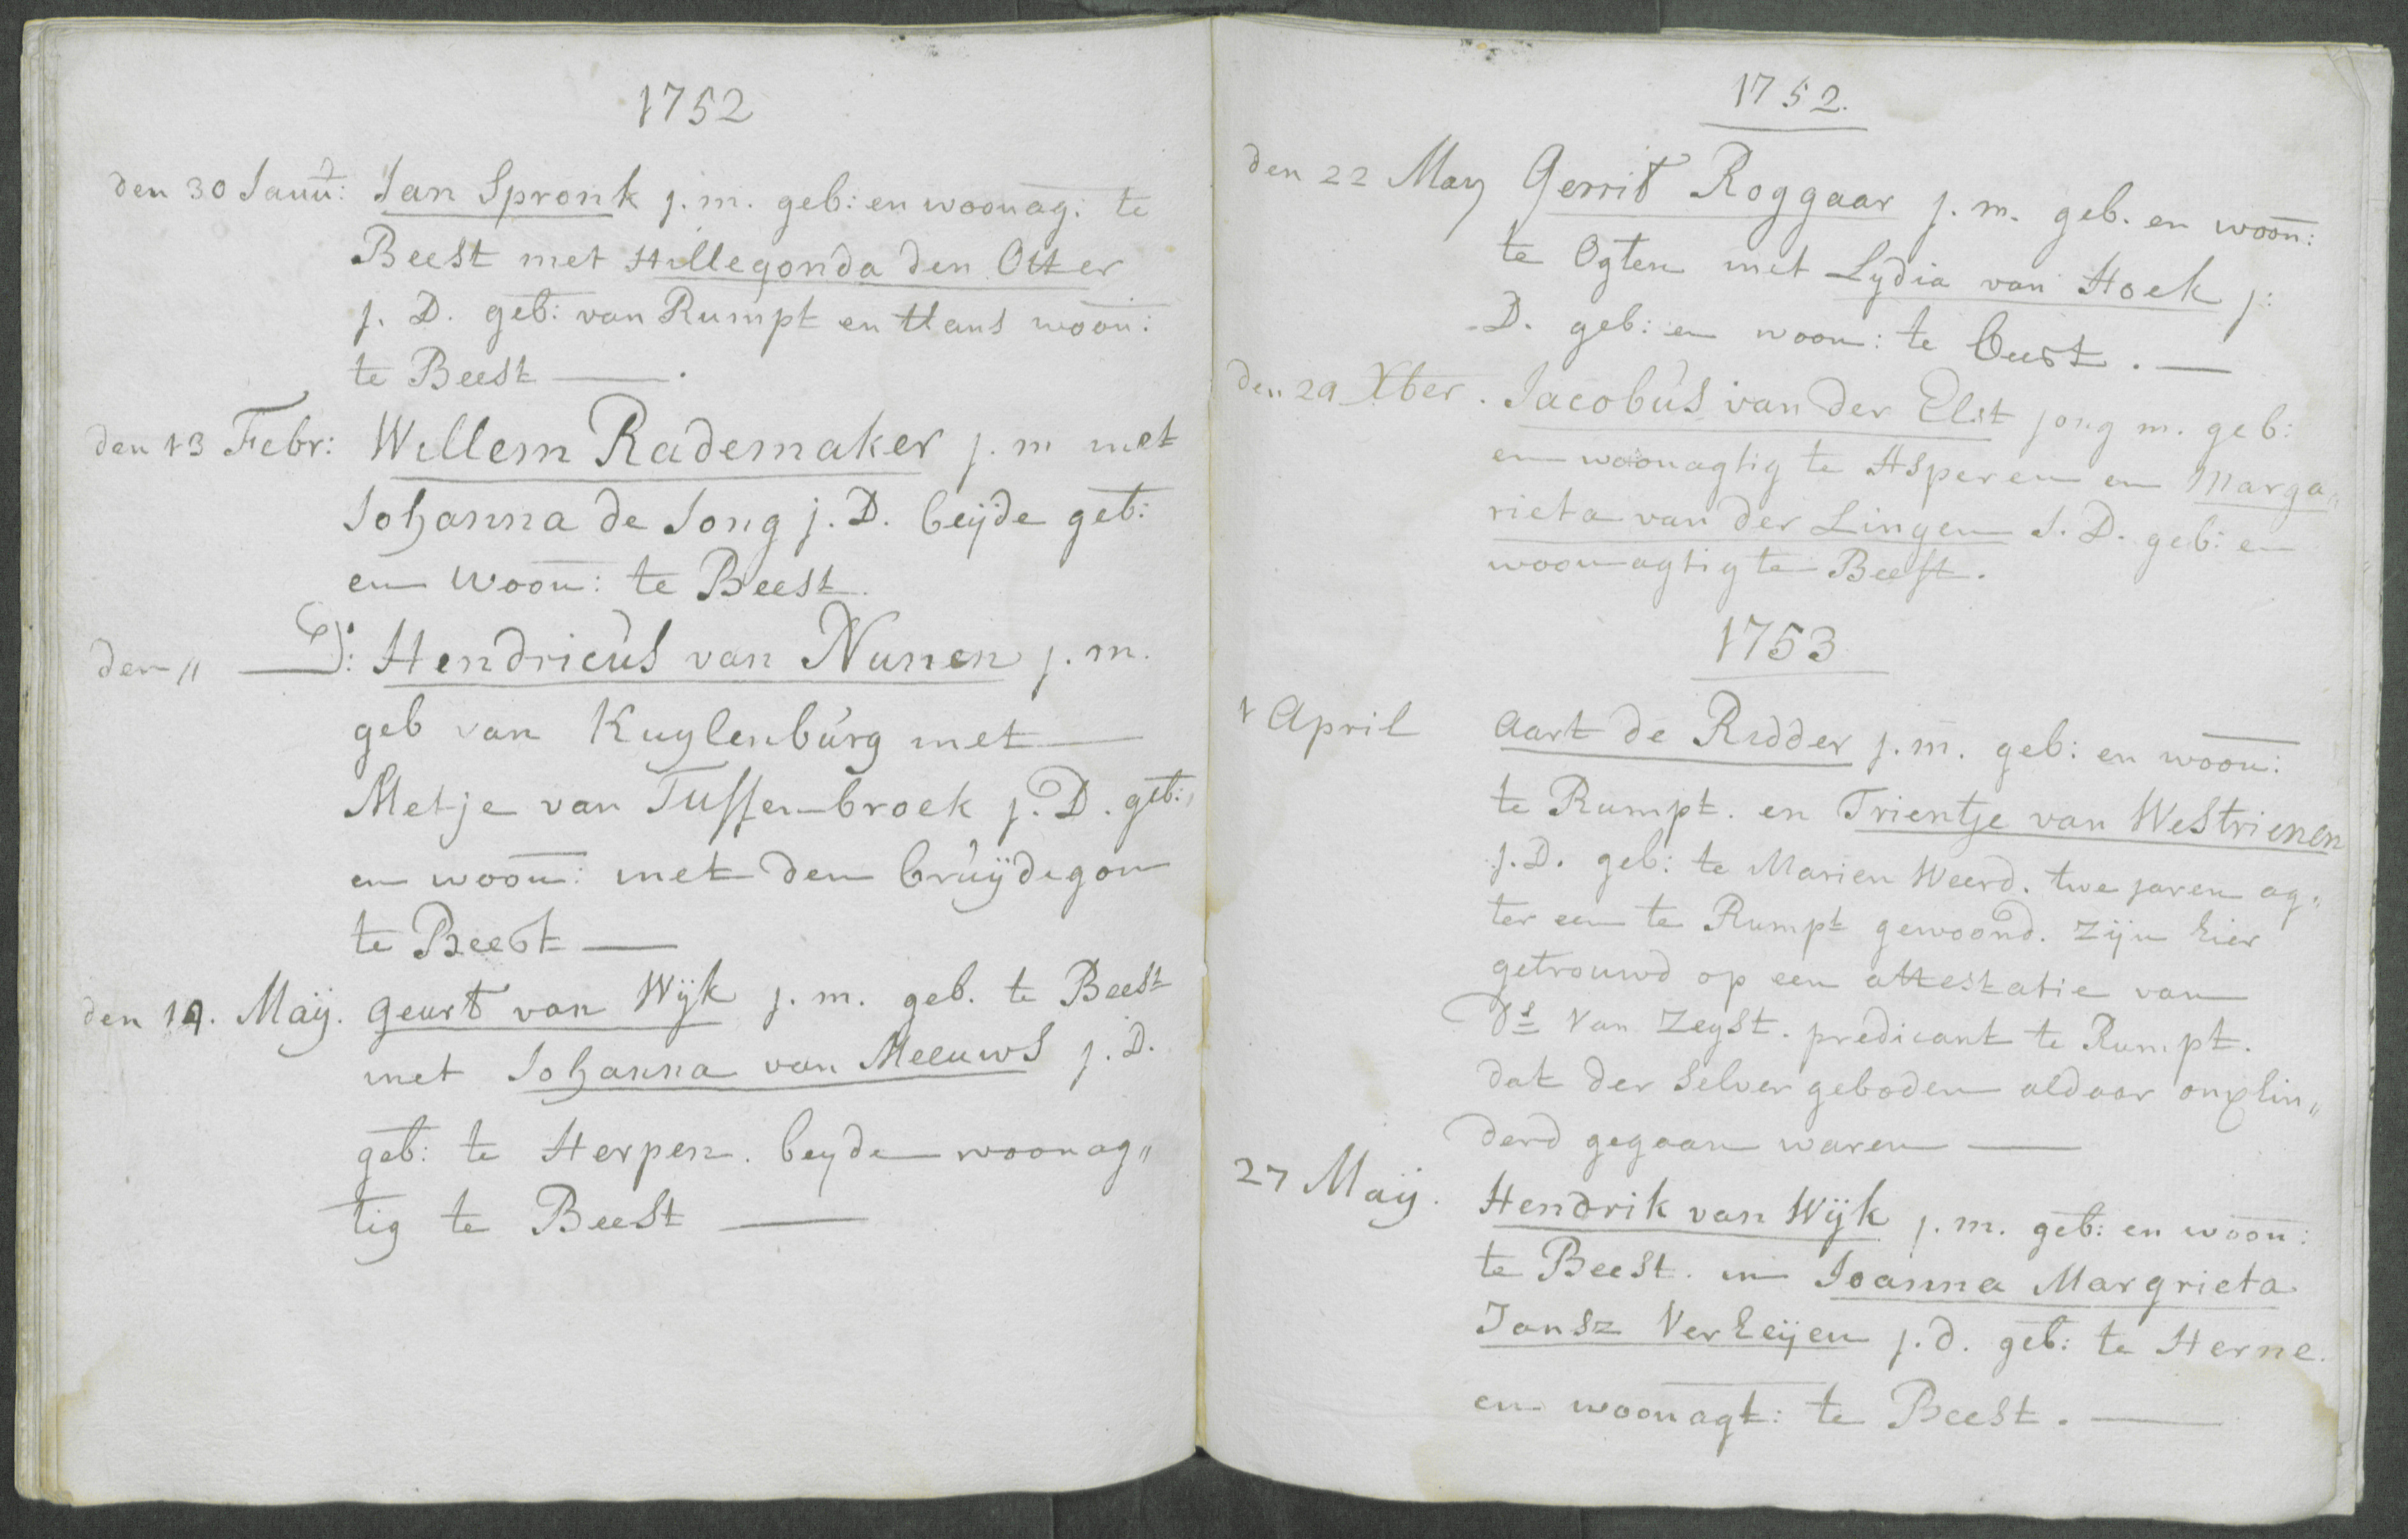 1752
den 30 Janu: Jan Spronk j. m. geb: en woonag: te
Beest met Hillegonda den Otter
j. D. geb: van Rumpt en thans woon:
te Beest —.
den 13 Febr: Willem Rademaker j. m met
Johanna de Jong j. D. beijde geb:
en woon: te Beest.
den " — D: Hendricus van Nunen j. m.
geb van Kuylenburg met —
Metje van Tussenbroek j. D. geb:
en woon: met den bruijdegom
te Beest —
den 19. Maij. Geurt van Wijk j. m. geb. te Beest
met Johanna van Meeuws j. D.
geb: te Herpen. beyde woonag"
tig te Beest —
1752.
den 22 May Gerrit Roggaar j. m. geb. en woon:
te Ogten met Lydia van Hoek j:
D. geb: en woon: te beest. —
den 29 Xber. Jacobus van der Elst jong m. geb:
en woonagtig te Asperen en Marga"
rieta van der Lingen J. D. geb: en
woonagtig te Beest.
1753
1 April Aart de Ridder j. m. geb: en woon:
te Rumpt. en Trientje van Westrienen
j. D. geb: te Marien Weerd. twe jaren ag"
ter een te Rumpt gewoond. zijn hier
getrouwd op een attestatie van
Ds Van Zeyst. predicant te Rumpt.
dat der selver geboden aldaar onghin"
derd gegaan waren —
27 Maij. Hendrik van Wijk j. m. geb: en woon:
te Beest. en Joanna Margrieta
Jansz Verheijen j. d. geb: te Herne.
en woonagt: te Beest. —